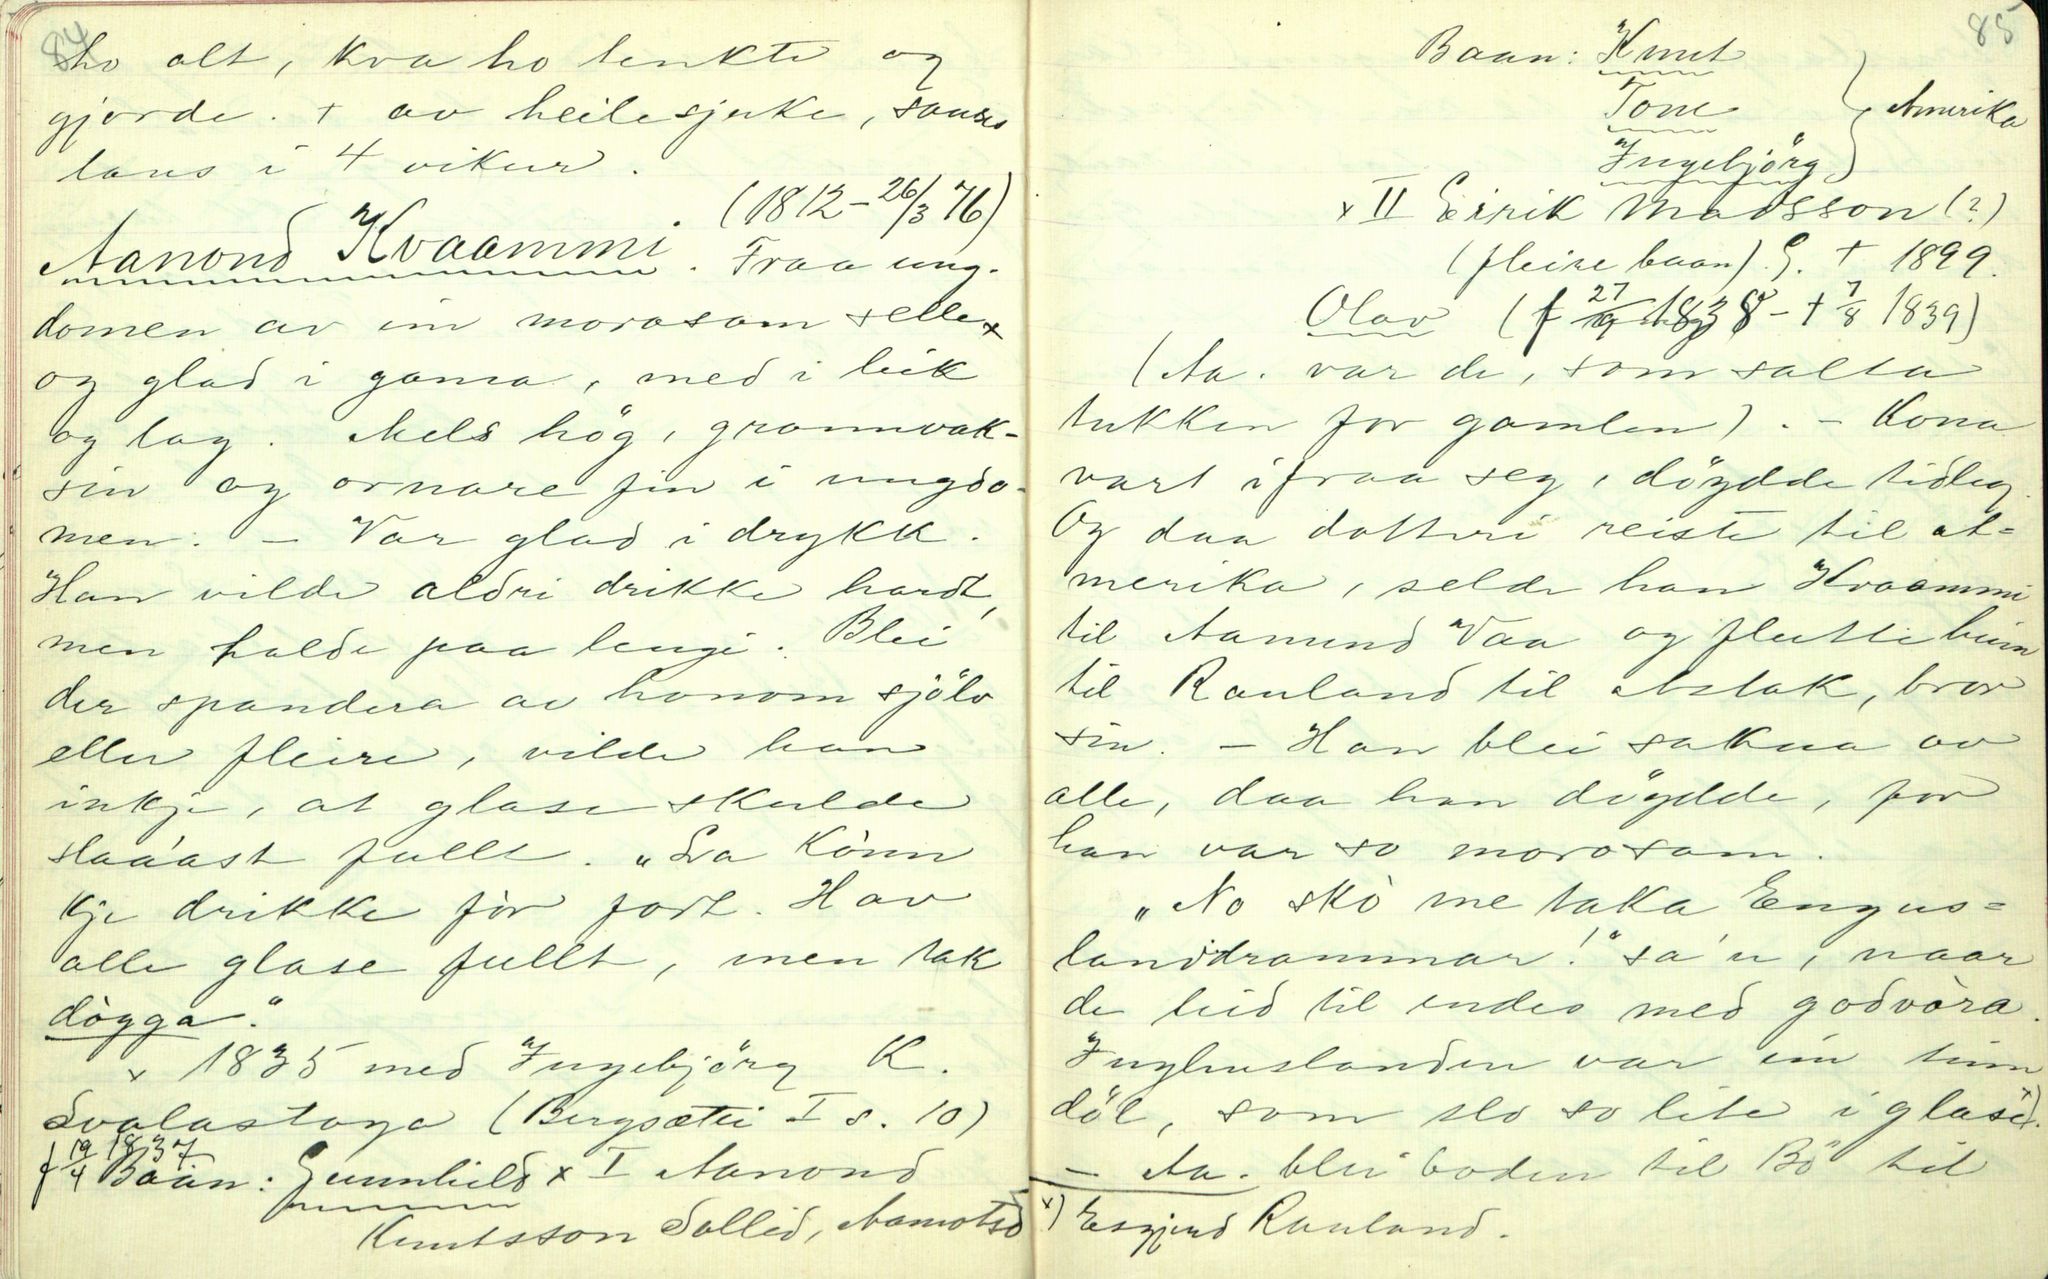 84
ho alt, kva ho tenkte og
gjorde. + av heilesjuke, sanse
laus i 4 vikur.
(1812 – 26/3 76)
Aanond Kvaammi. Fraa ung-
domen av ein morosam selle x
og glad i gama, med i leik
og lag. Mels hög, grannvak-
sin og ovnare fin i ungdo-
men. – Var glad i drykk.
Han vilde aldri drikke hardt,
men halde paa lengi. Blei
der spandera av honom sjölv
eller fleire, vilde han
inkje, at glase skulde
slaa'ast fullt. „La kònn
kje drikke fòr fort. Hav
alle glase fullt, men tak
dògga“.
x 1835 med Ingebjörg K.
Svalastoga (Bergsætti I s. 10)
f 19/4 1837
Baan: Gunnhild x I Aanond
Knutsson Sollid, Aamotsd
85
Baan: Knut
Tone
Ingebjörg
Amerika
x II Eirik Madsson (?)
(fleire baan) G. + 1899.
Olav (f 27 1838 – + 7/8 1839)
(Aa. var de, som salta
tukken for gamlen). – Kona
vart ifraa seg, döydde tidleg.
Og daa dotteri reiste til A-
merika, selde han Kvaammi
til Aamund Vaa og flutte heim
til Rauland til Aslak, bror
sin. – Han blei sakna av
alle, daa han döydde, for
han var so morosam.
„No skò me taka Engus-
landdrammar!“ sa'n, naar
de leid til endes med godvòra.
Inghuslanden var ein tunn
döl, som slo so lite i glase x).
– Aa. blei boden til Bö til
x) Eivind Rauland.